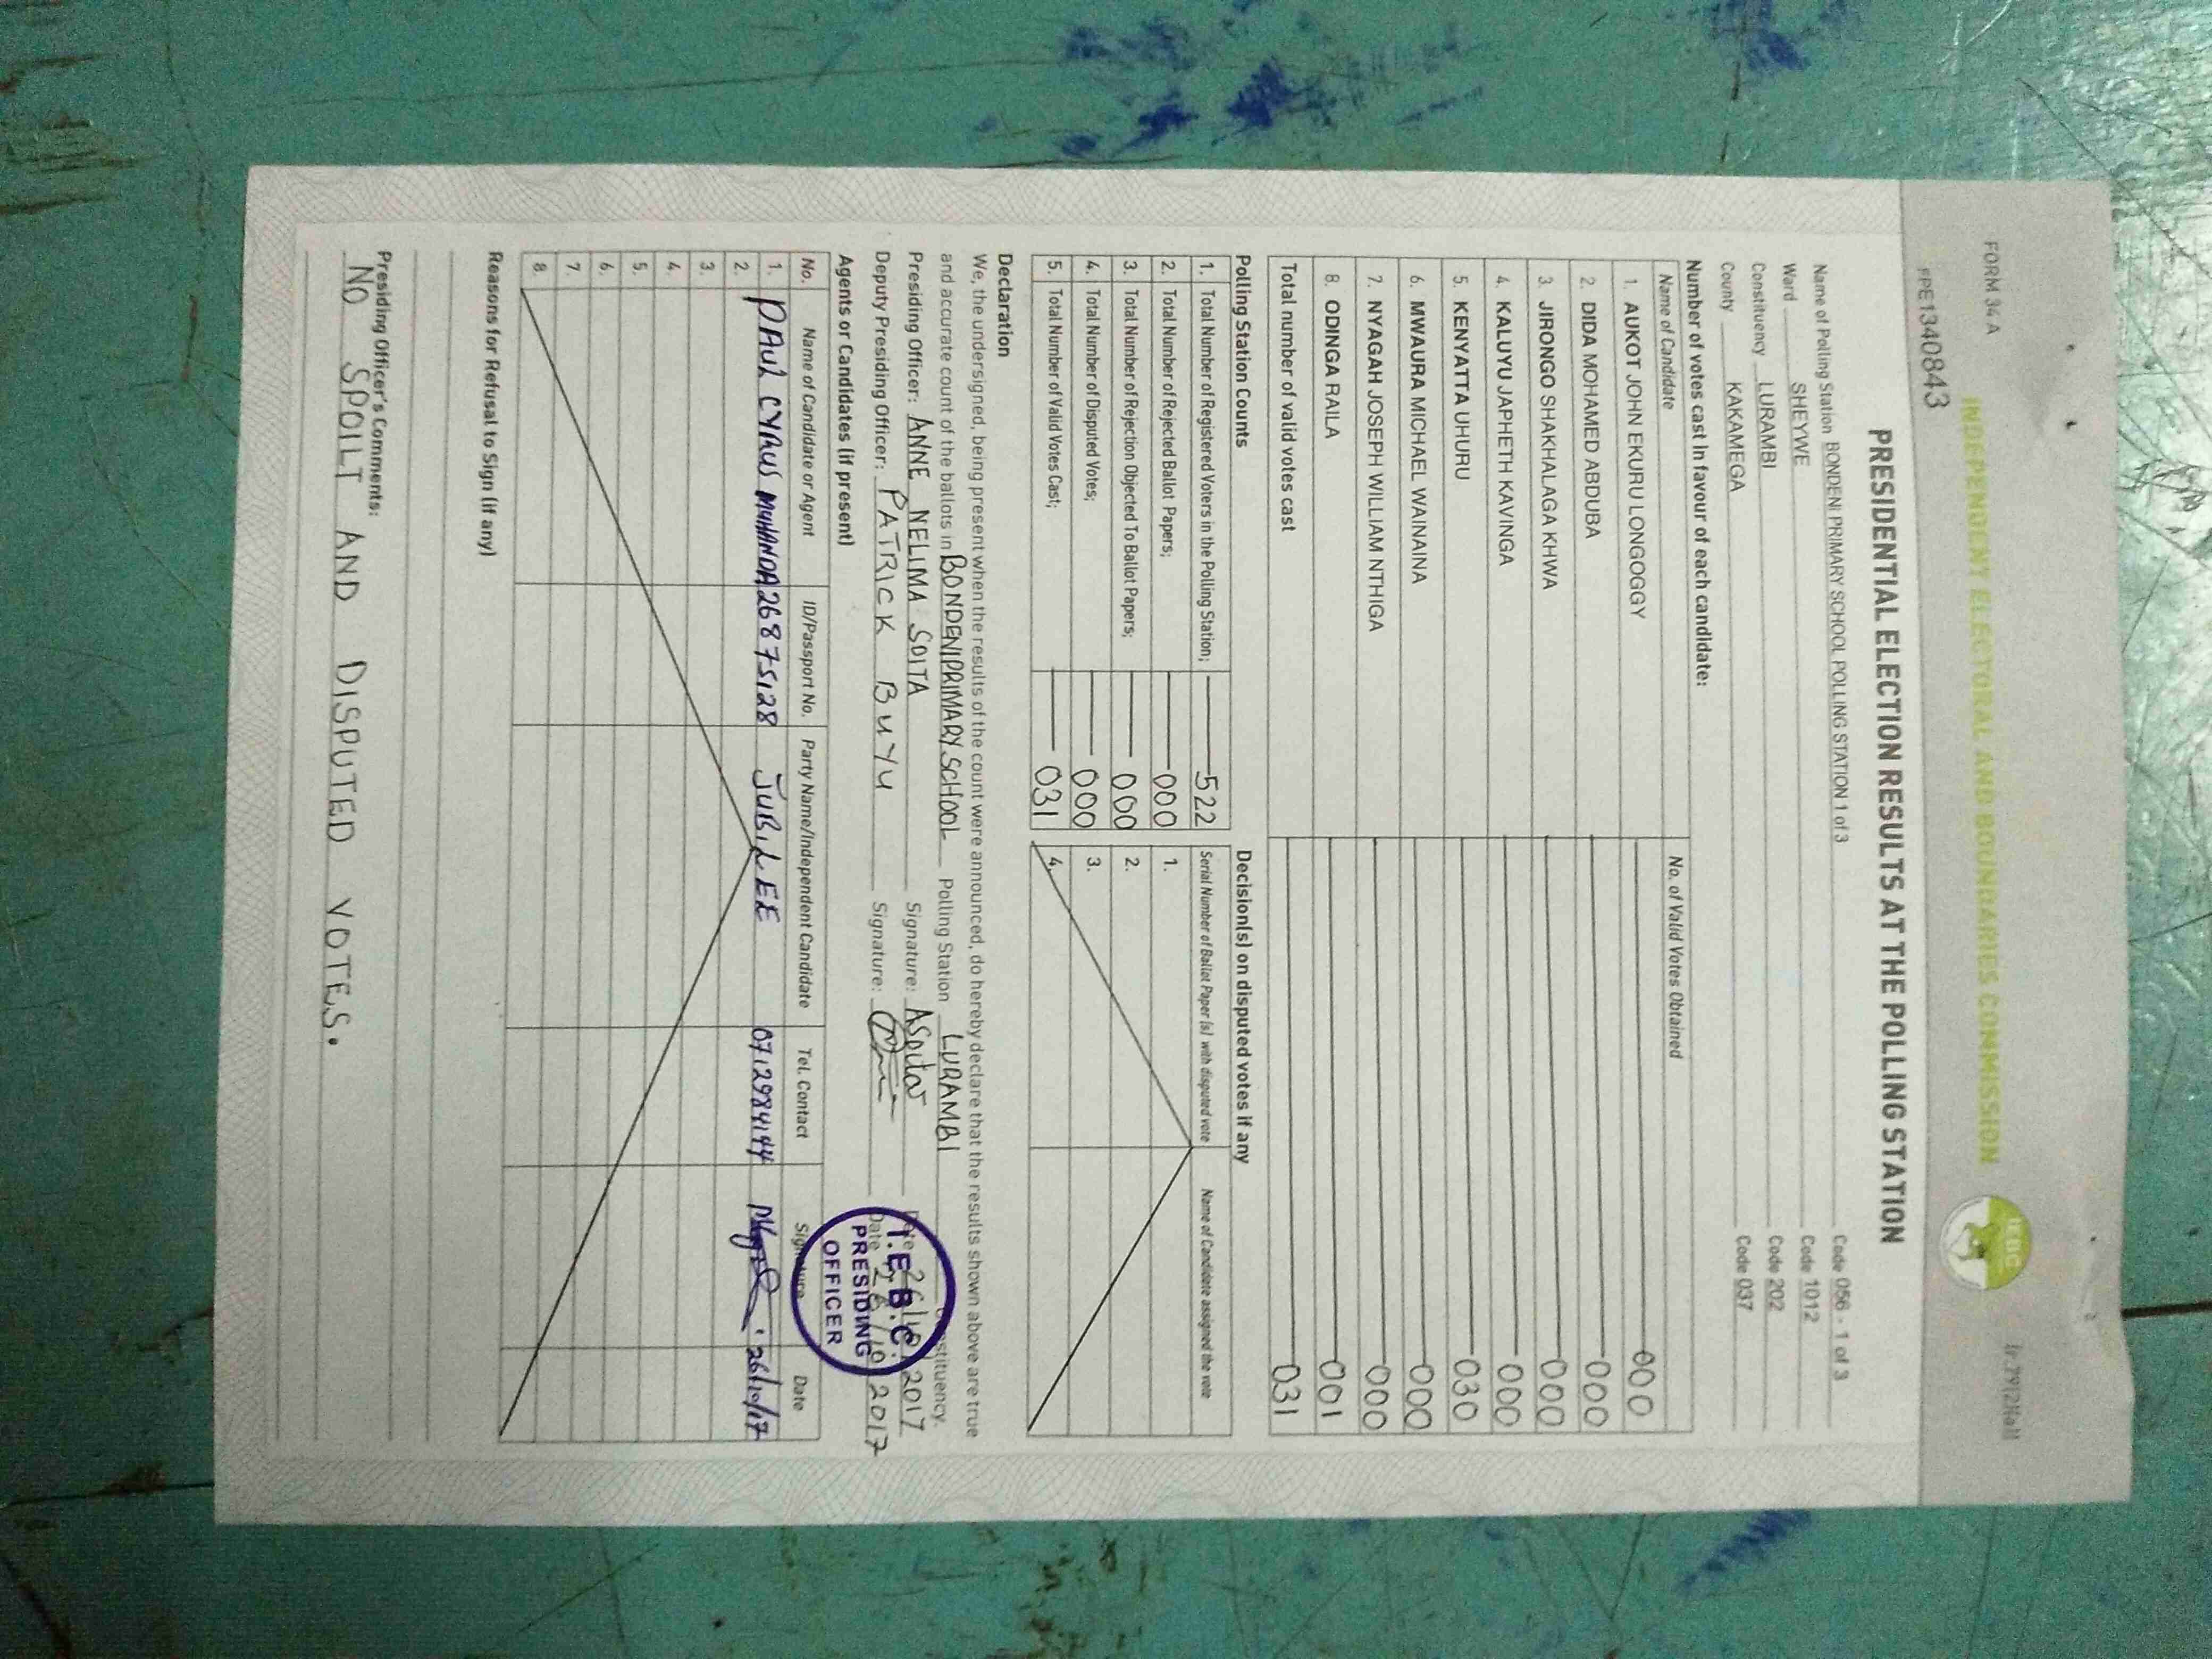 FORM 34 A
INDEPENDENT ELECTORAL AND BOUNDARIES COMMISSION
IEBC
PPE1340843
PRESIDENTIAL ELECTION RESULTS AT THE POLLING STATION
Name of Polling Station BONDENI PRIMARY SCHOOL POLLING STATION 1 of 3 Code 056 - 1 of 3
Ward SHEYWE Code 1012
Constituency LURAMBI Code 202
County KAKAMEGA Code 037
Number of votes cast in favour of each candidate:
Name of Candidate No. of Valid Votes Obtained
1. AUKOT JOHN EKURU LONGOGGY 000
2. DIDA MOHAMED ABDUBA 000
3. JIRONGO SHAKHALAGA KHWA 000
4. KALUYU JAPHETH KAVINGA 000
5. KENYATTA UHURU 030
6. MWAURA MICHAEL WAINAINA 000
7. NYAGAH JOSEPH WILLIAM NTHIGA 000
8. ODINGA RAILA 001
Total number of valid votes cast 031
Polling Station Counts
1. Total Number of Registered Voters in the Polling Station; 522
2. Total Number of Rejected Ballot Papers; 000
3. Total Number of Rejection Objected To Ballot Papers; 000
4. Total Number of Disputed Votes; 000
5. Total Number of Valid Votes Cast; 031
Decision(s) on disputed votes if any
Serial Number of Ballot Paper (s) with disputed vote Name of Candidate assigned the vote
1.
2.
3.
4.
Declaration
We, the undersigned, being present when the results of the count were announced, do hereby declare that the results shown above are true
and accurate count of the ballots in BONDENI PRIMARY SCHOOL Polling Station LURAMBI Constituency.
Presiding Officer: ANNE NELIMA SOITA Signature: ASoita Date 26/10/2017
Deputy Presiding Officer: PATRICK BUYU Signature: Date 26/10/2017
I.E.B.C.
PRESIDING
OFFICER
Agents or Candidates (if present)
No. Name of Candidate or Agent ID/Passport No. Party Name/Independent Candidate Tel. Contact Signature Date
1. PAUL CYRUS MUHANDA 26875128 JUBILEE 0712984144 26/10/17
2.
3.
4.
5.
6.
7.
8.
Reasons for Refusal to Sign (if any)
Presiding Officer's Comments:
NO SPOILT AND DISPUTED VOTES.